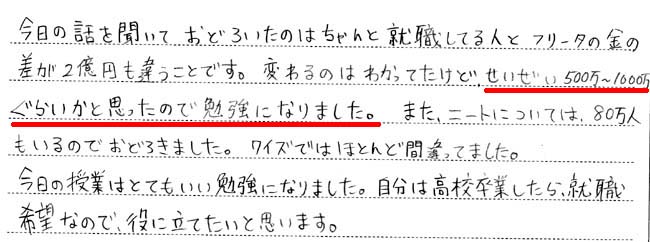 今日の話を聞いて おどろいたのはちゃんと就職してる人とフリータの金の
差が2億円も違うことです。変わるのはわかってたけど、せいぜい500万~1000万
ぐらいかと思ったので勉強になりました。 また、ニートについては、80万人
もいるのでおどろきました。クイズではほとんど間違ってました。
今日の授業はとてもいい勉強になりました。自分は高校卒業したら、就職
希望なので、役に立てたいと思います。